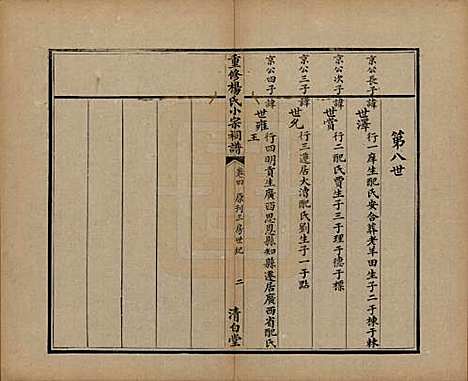 第八世
京公長子諱
世澤
行一庠生配氏安合葬老羊田生子二于棟于林
京公次子諱
世賞
行二配氏賈生子三于理于德于標
京公三子諱
世允
行三遷居大漕配氏劉生子一于點
京公四子諱
世雍
行四明貢生廣西思恩縣知縣遷居廣西省配氏
王
重修楊氏小宗祠譜
卷四
原刊三房世紀
二
清白堂